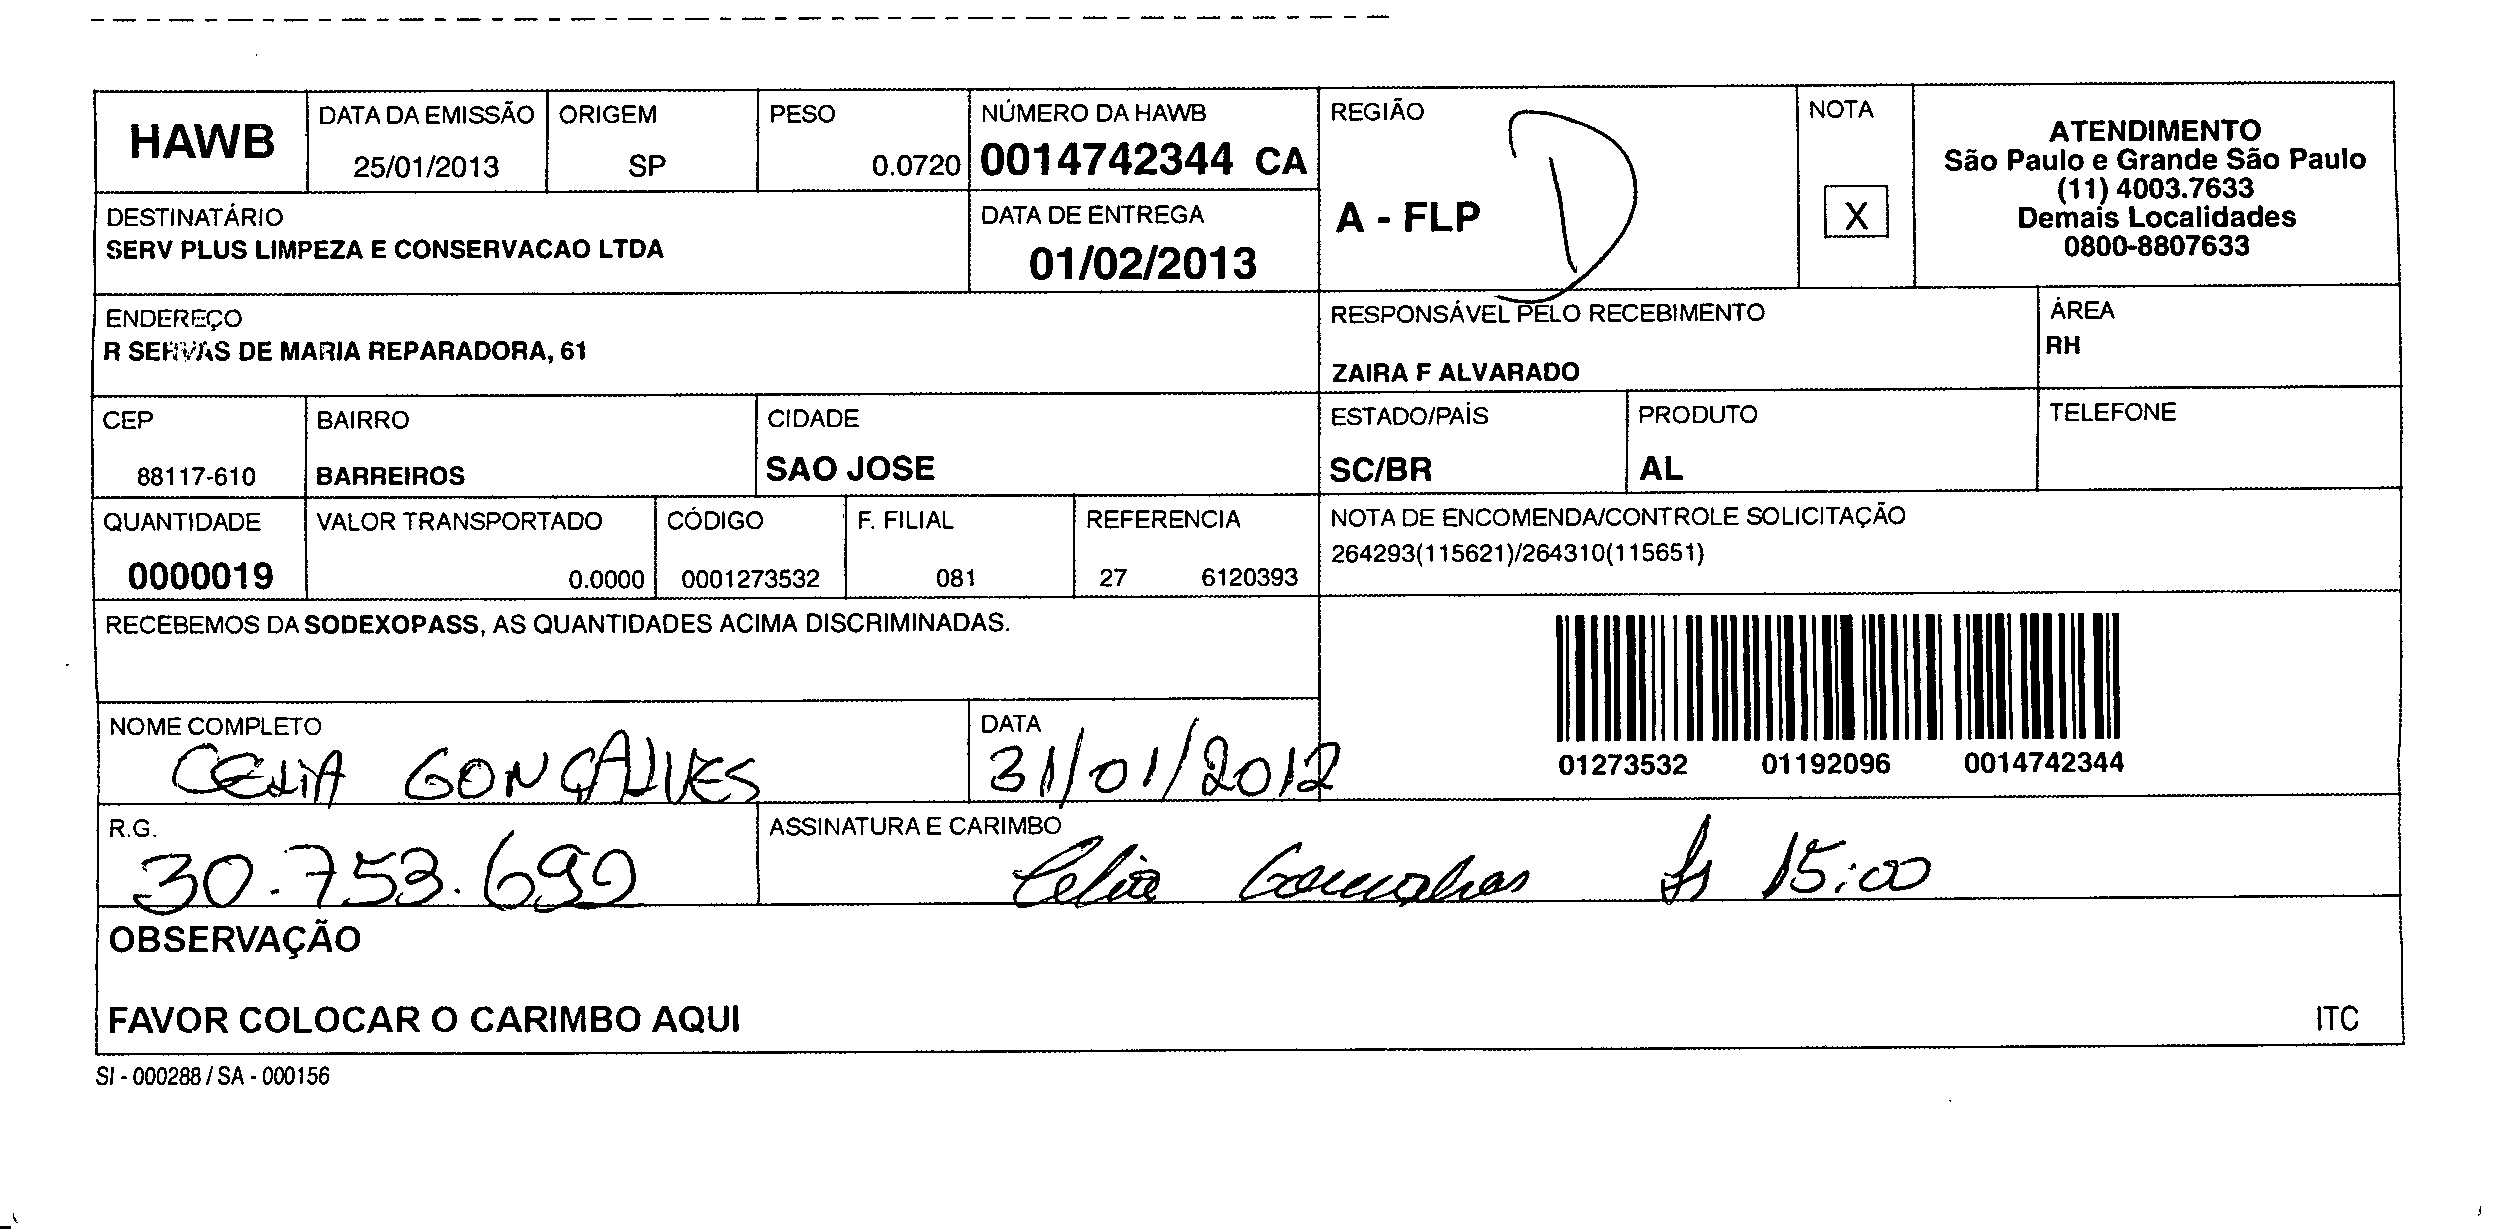 HAWB
DATA DA EMISSÃO
25/01/2013
ORIGEM
SP
PESO
0.0720
NÚMERO DA HAWB
0014742344 CA
REGIÃO
A - FLP
D
NOTA
X
ATENDIMENTO
São Paulo e Grande São Paulo
(11) 4003.7633
Demais Localidades
0800-8807633
DESTINATÁRIO
SERV PLUS LIMPEZA E CONSERVACAO LTDA
DATA DE ENTREGA
01/02/2013
ENDEREÇO
R SERVAS DE MARIA REPARADORA, 61
RESPONSÁVEL PELO RECEBIMENTO
ZAIRA F ALVARADO
ÁREA
RH
CEP
88117-610
BAIRRO
BARREIROS
CIDADE
SAO JOSE
ESTADO/PAÍS
SC/BR
PRODUTO
AL
TELEFONE
QUANTIDADE
0000019
VALOR TRANSPORTADO
0.0000
CÓDIGO
0001273532
F. FILIAL
081
REFERENCIA
27 6120393
NOTA DE ENCOMENDA/CONTROLE SOLICITAÇÃO
264293(115621)/264310(115651)
RECEBEMOS DA SODEXOPASS, AS QUANTIDADES ACIMA DISCRIMINADAS.
01273532 01192096 0014742344
NOME COMPLETO
CELIA GONÇALVES
DATA
31/01/2012
R.G.
30.753.699
ASSINATURA E CARIMBO
Celia Goncalves 15:00
OBSERVAÇÃO
FAVOR COLOCAR O CARIMBO AQUI
ITC
SI - 000288 / SA - 000156